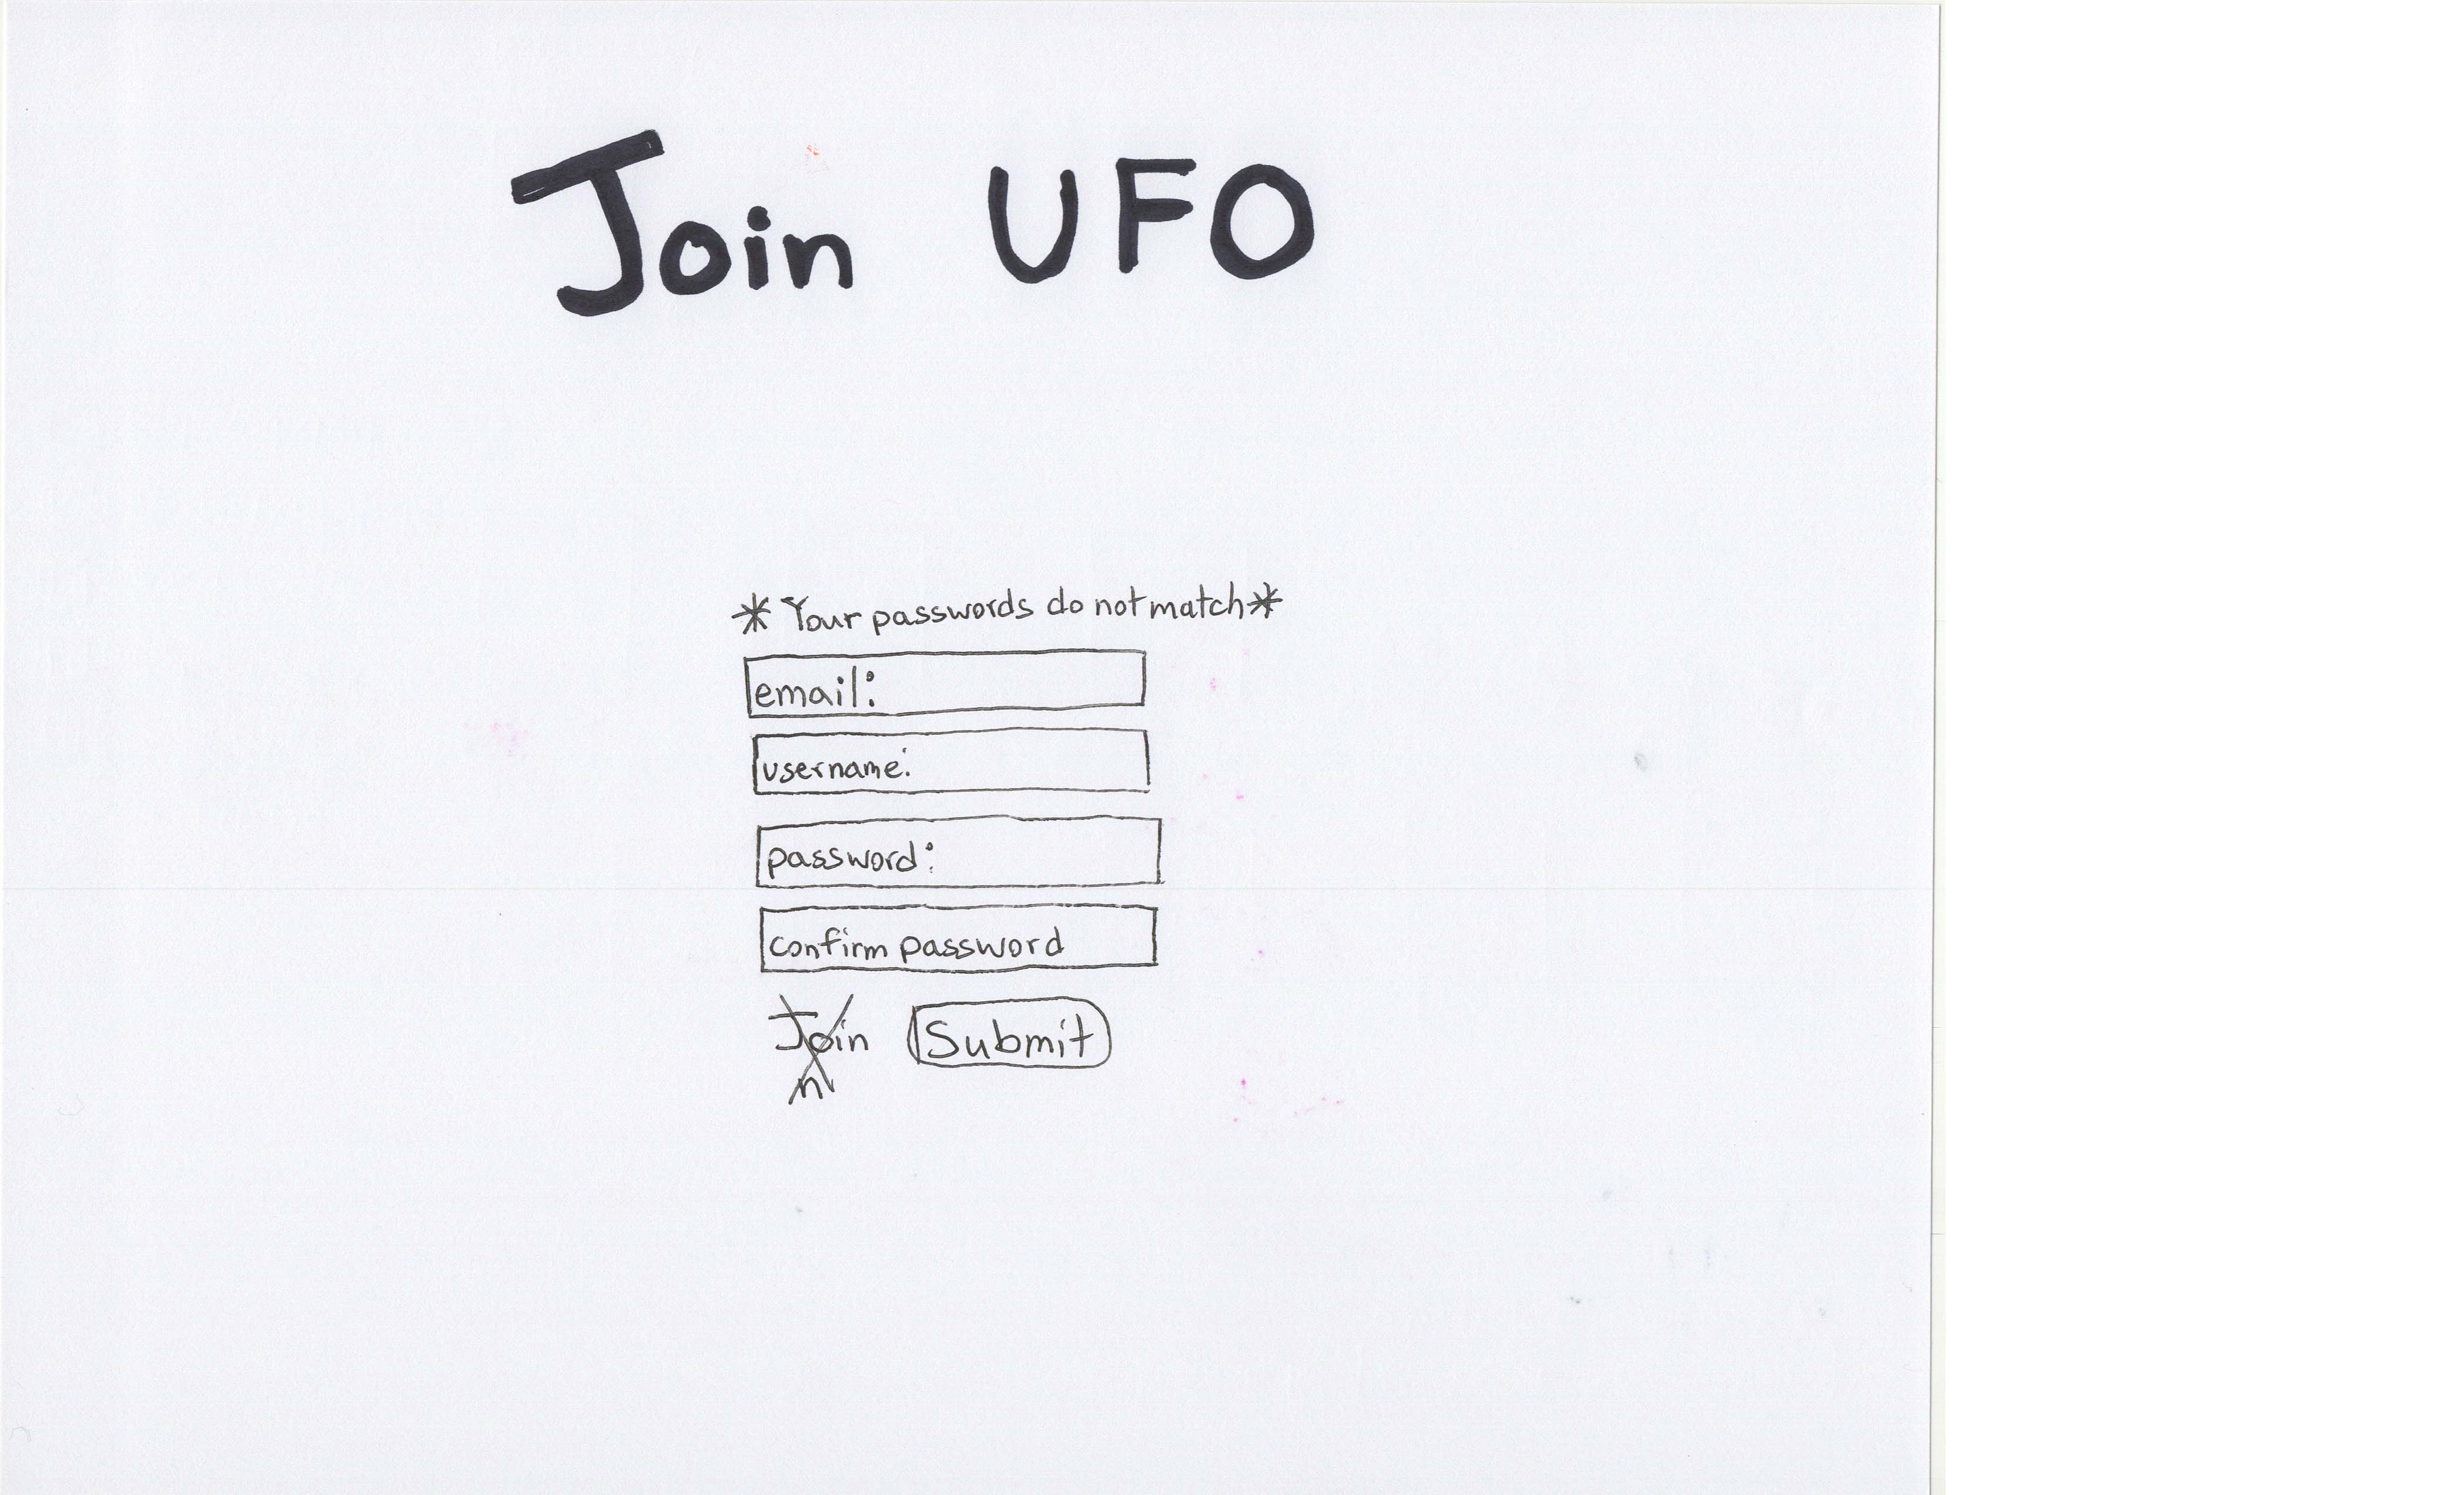 Join UFO
* Your passwords do not match *
email:
username:
password:
confirm password
Join Submit
n